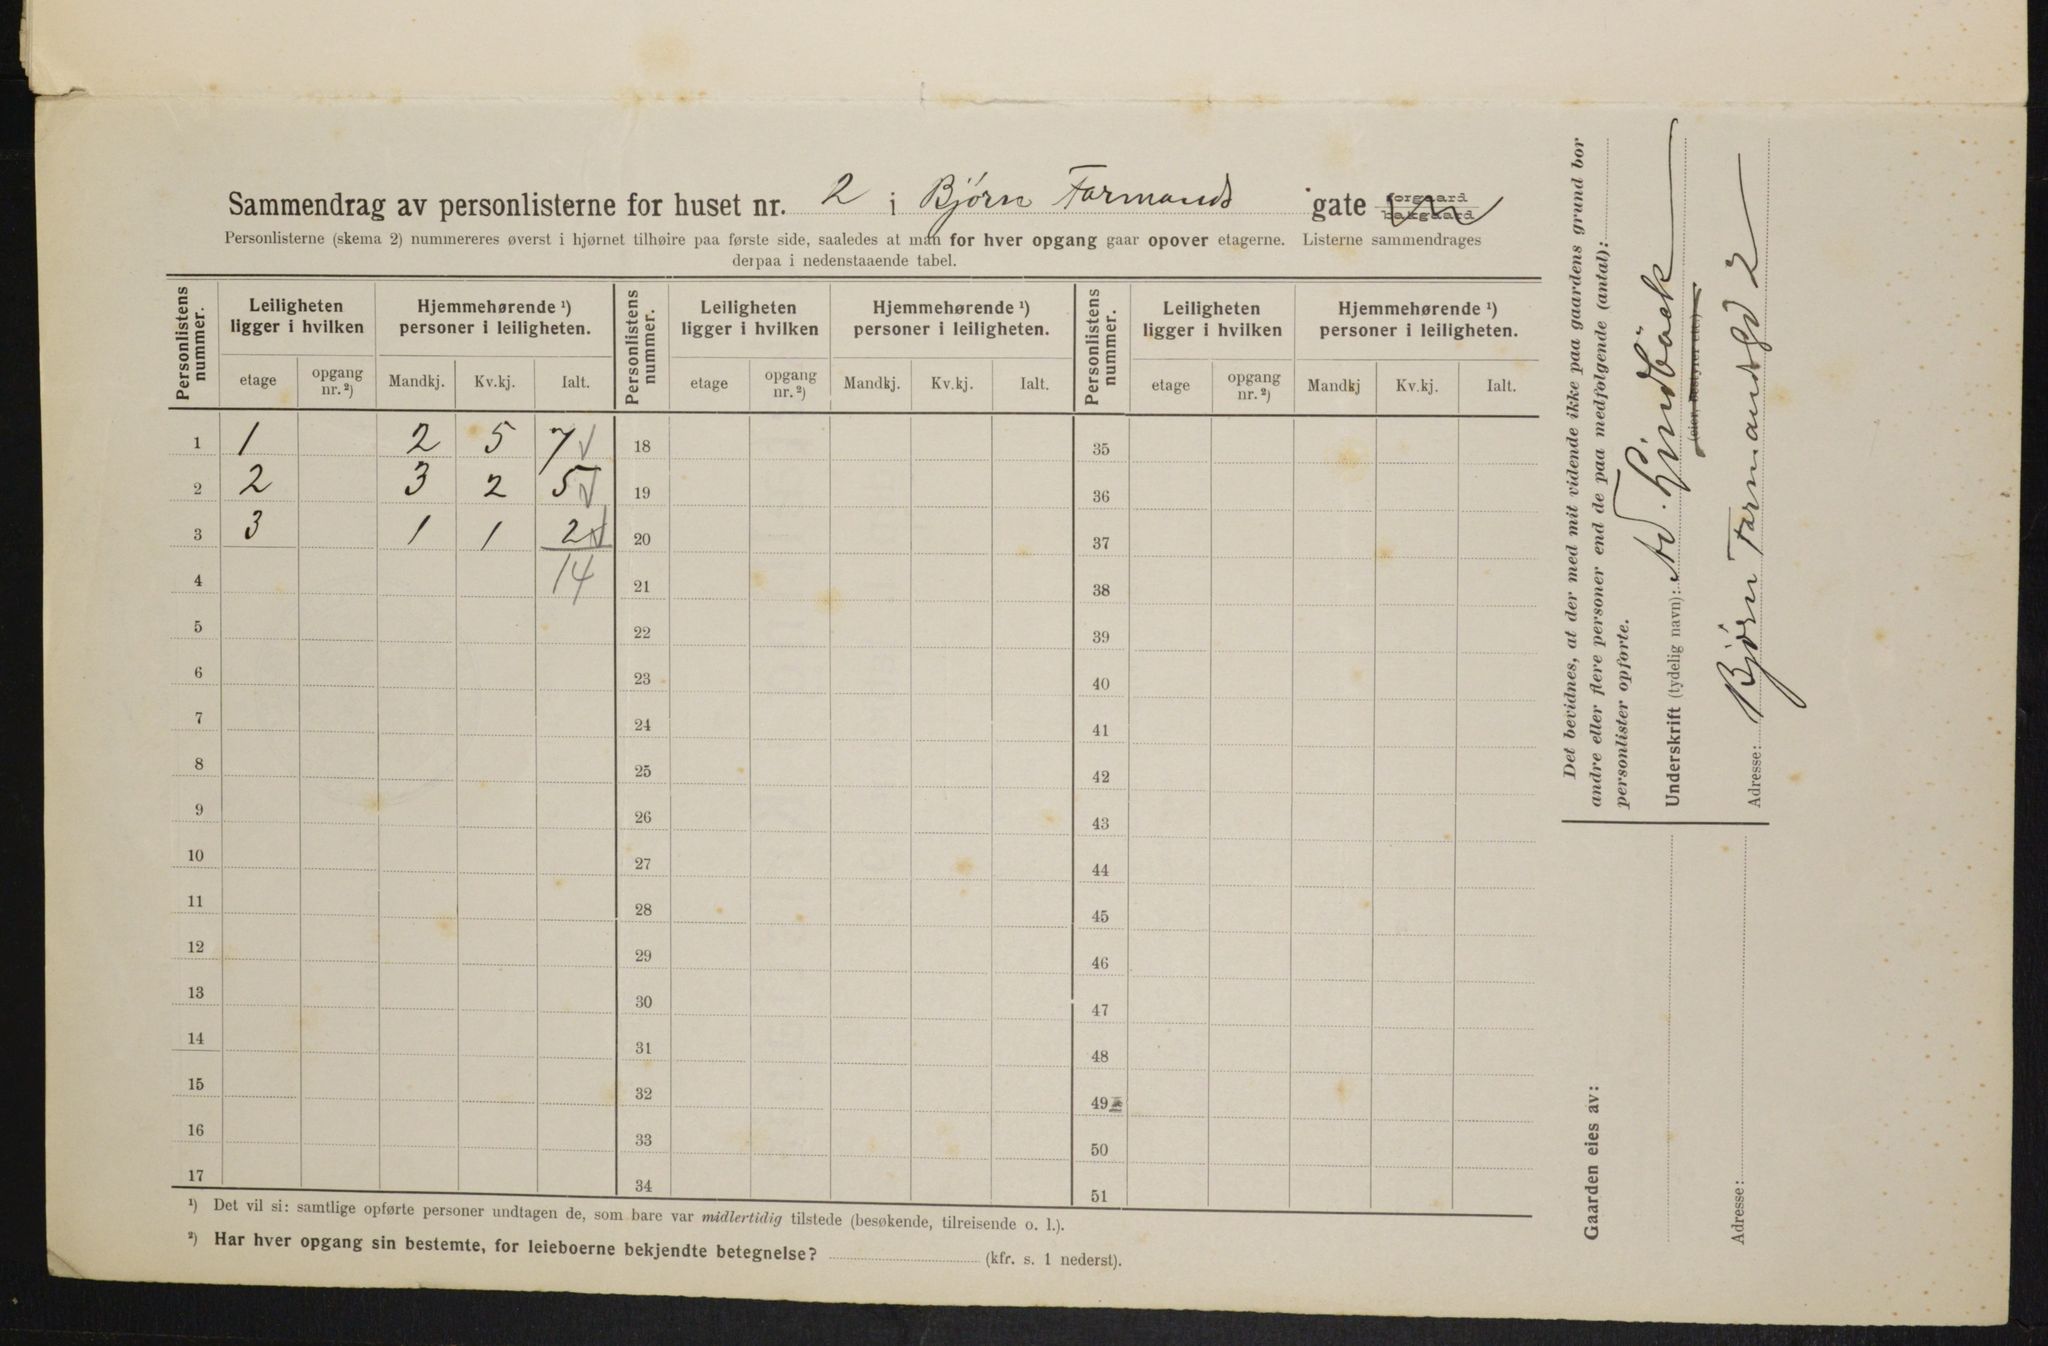 Sammendrag av personlisterne for huset nr. 2 i Bjørn Farmands gate forgaard bakgaard
Personlisterne (skema 2) nummereres øverst i hjørnet tilhøire paa første side, saaledes at man for hver opgang gaar opover etagerne. Listerne sammendrages
derpaa i nedenstaaende tabel.
Personlistens nummer. Leiligheten ligger i hvilken Hjemmehørende ¹) personer i leiligheten. Personlistens nummer. Leiligheten ligger i hvilken Hjemmehørende ¹) personer i leiligheten. Personlistens nummer. Leiligheten ligger i hvilken Hjemmehørende ¹) personer i leiligheten.
etage opgang nr. ²) Mandkj. Kv.kj. Ialt. etage opgang nr. ²) Mandkj. Kv.kj. Ialt. etage opgang nr. ²) Mandkj Kv.kj. Ialt.
1 1 2 5 7 18 35
2 2 3 2 5 19 36
3 3 1 1 2 20 37
4 14 21 38
5 22 39
6 23 40
7 24 41
8 25 42
9 26 43
10 27 44
11 28 45
12 29 46
13 30 47
14 31 48
15 32 49
16 33 50
17 34 51
¹) Det vil si: samtlige opførte personer undtagen de, som bare var midlertidig tilstede (besøkende, tilreisende o. l.).
²) Har hver opgang sin bestemte, for leieboerne bekjendte betegnelse? (kfr. s. 1 nederst).
Det bevidnes, at der med mit vidende ikke paa gaardens grund bor
andre eller flere personer end de paa medfølgende (antal):
personlister opførte.
Underskrift (tydelig navn): Ad. Lindbäck
(eier, bestyrer etc.)
Adresse: Bjørn Farmandsgd 2
Gaarden eies av:
Adresse: